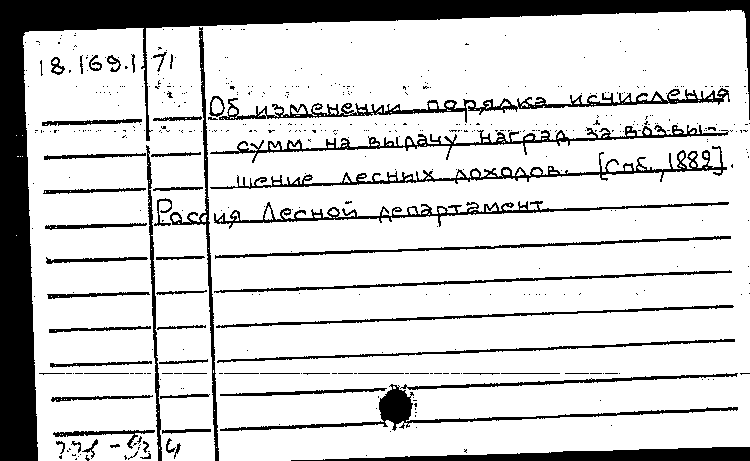 18.169.1.71
Об изменении порядка исчисления
сумм на выдачу наград за возвы-
шение лесных доходов. [Спб., 1882].
Россия Лесной департамент
93 4